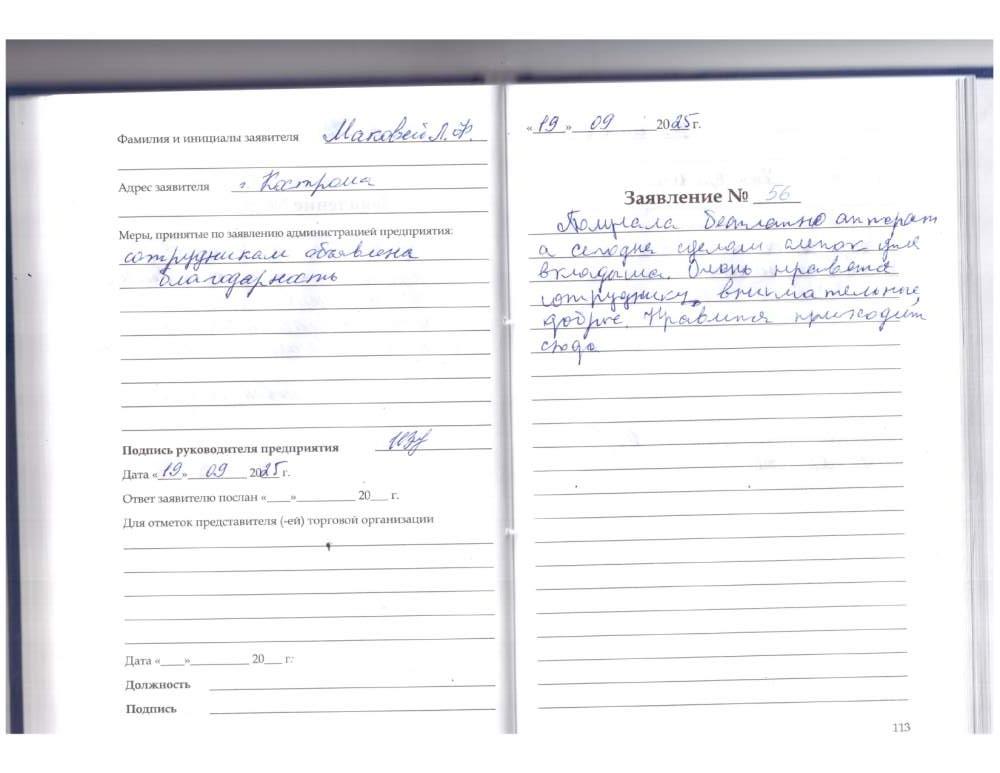 Фамилия и инициалы заявителя Маковей Л.Ф.
Адрес заявителя г. Кострома
Меры, принятые по заявлению администрацией предприятия:
сотрудникам объявлена
благодарность
Подпись руководителя предприятия
Дата «19» 09 2025 г.
Ответ заявителю послан «___»__________ 20___ г.
Для отметок представителя (-ей) торговой организации
Дата «____»__________ 20___ г.
Должность
Подпись
«19» 09 2025 г.
Заявление № 56
Получала бесплатно аппарат
а сегодня сделали слепок для
вкладыша. Очень нравятся
сотрудники, внимательные,
добрые. Нравится приходить
сюда
113